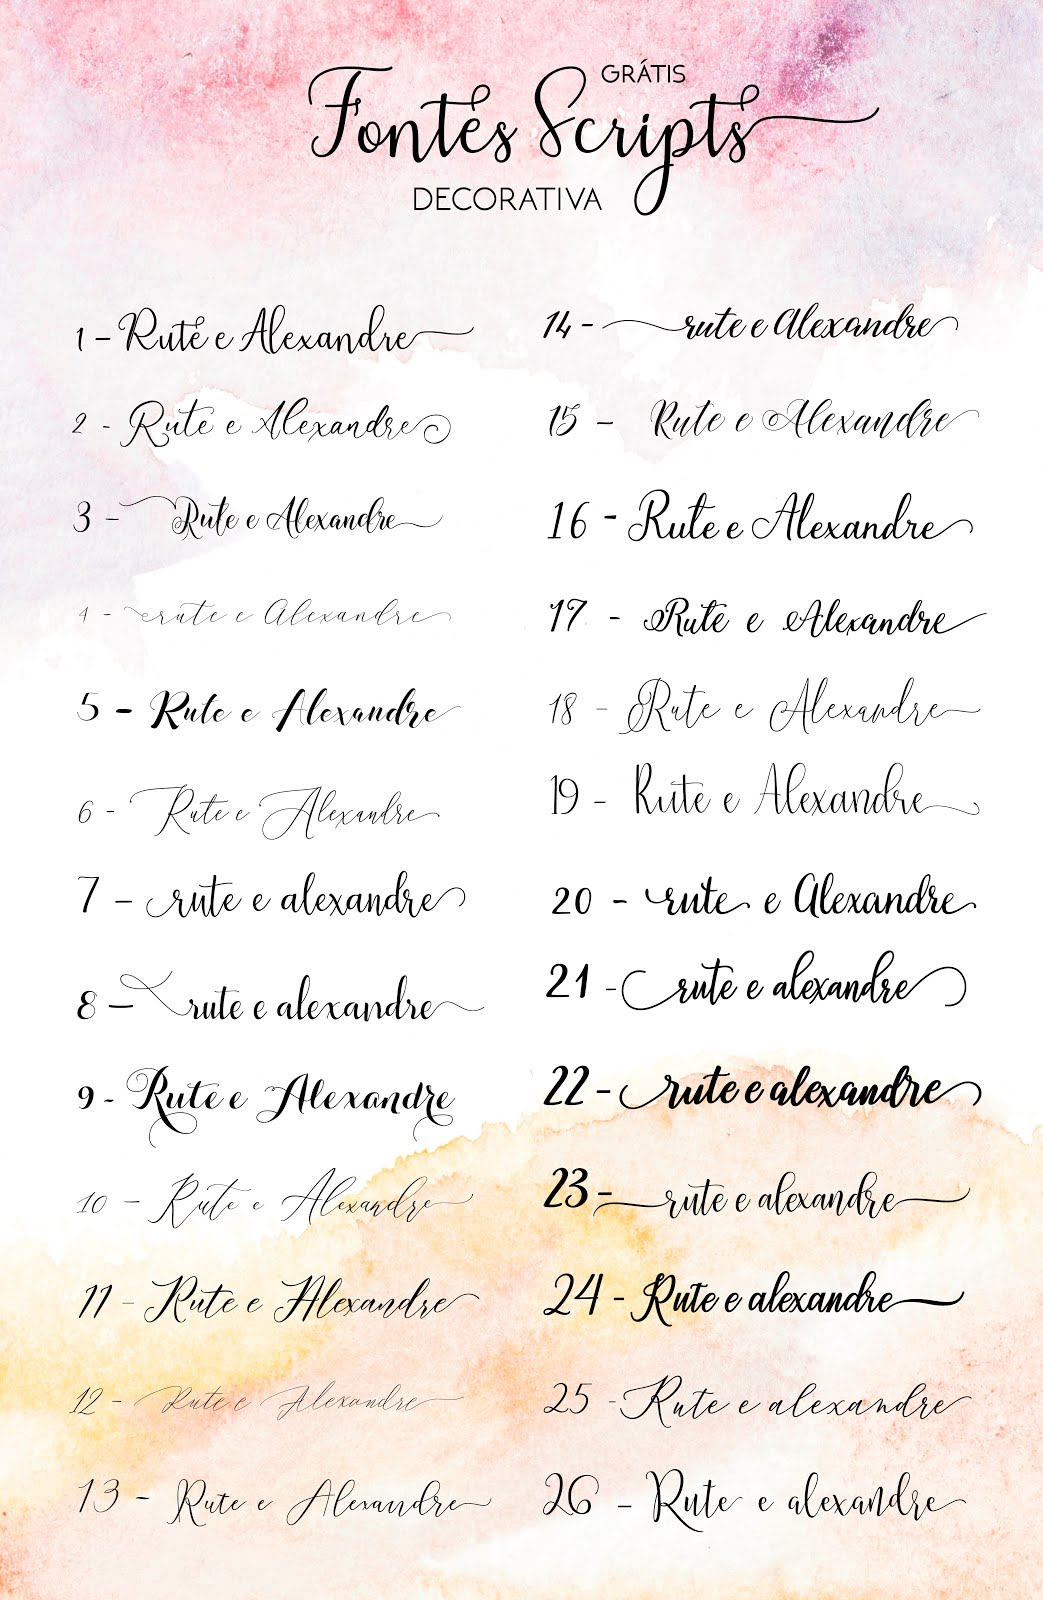 GRÁTIS
Fontes Scripts
DECORATIVA
1 - Rute e Alexandre
2 - Rute e Alexandre
3 - Rute e Alexandre
4 - rute e Alexandre
5 - Rute e Alexandre
6 - Rute e Alexandre
7 - rute e alexandre
8 - rute e alexandre
9 - Rute e Alexandre
10 - Rute e Alexandre
11 - Rute e Alexandre
12 - Rute e Alexandre
13 - Rute e Alexandre
14 - rute e Alexandre
15 - Rute e Alexandre
16 - Rute e Alexandre
17 - Rute e Alexandre
18 - Rute e Alexandre
19 - Rute e Alexandre
20 - rute e Alexandre
21 - rute e alexandre
22 - rute e alexandre
23 - rute e alexandre
24 - Rute e alexandre
25 - Rute e alexandre
26 - Rute e alexandre